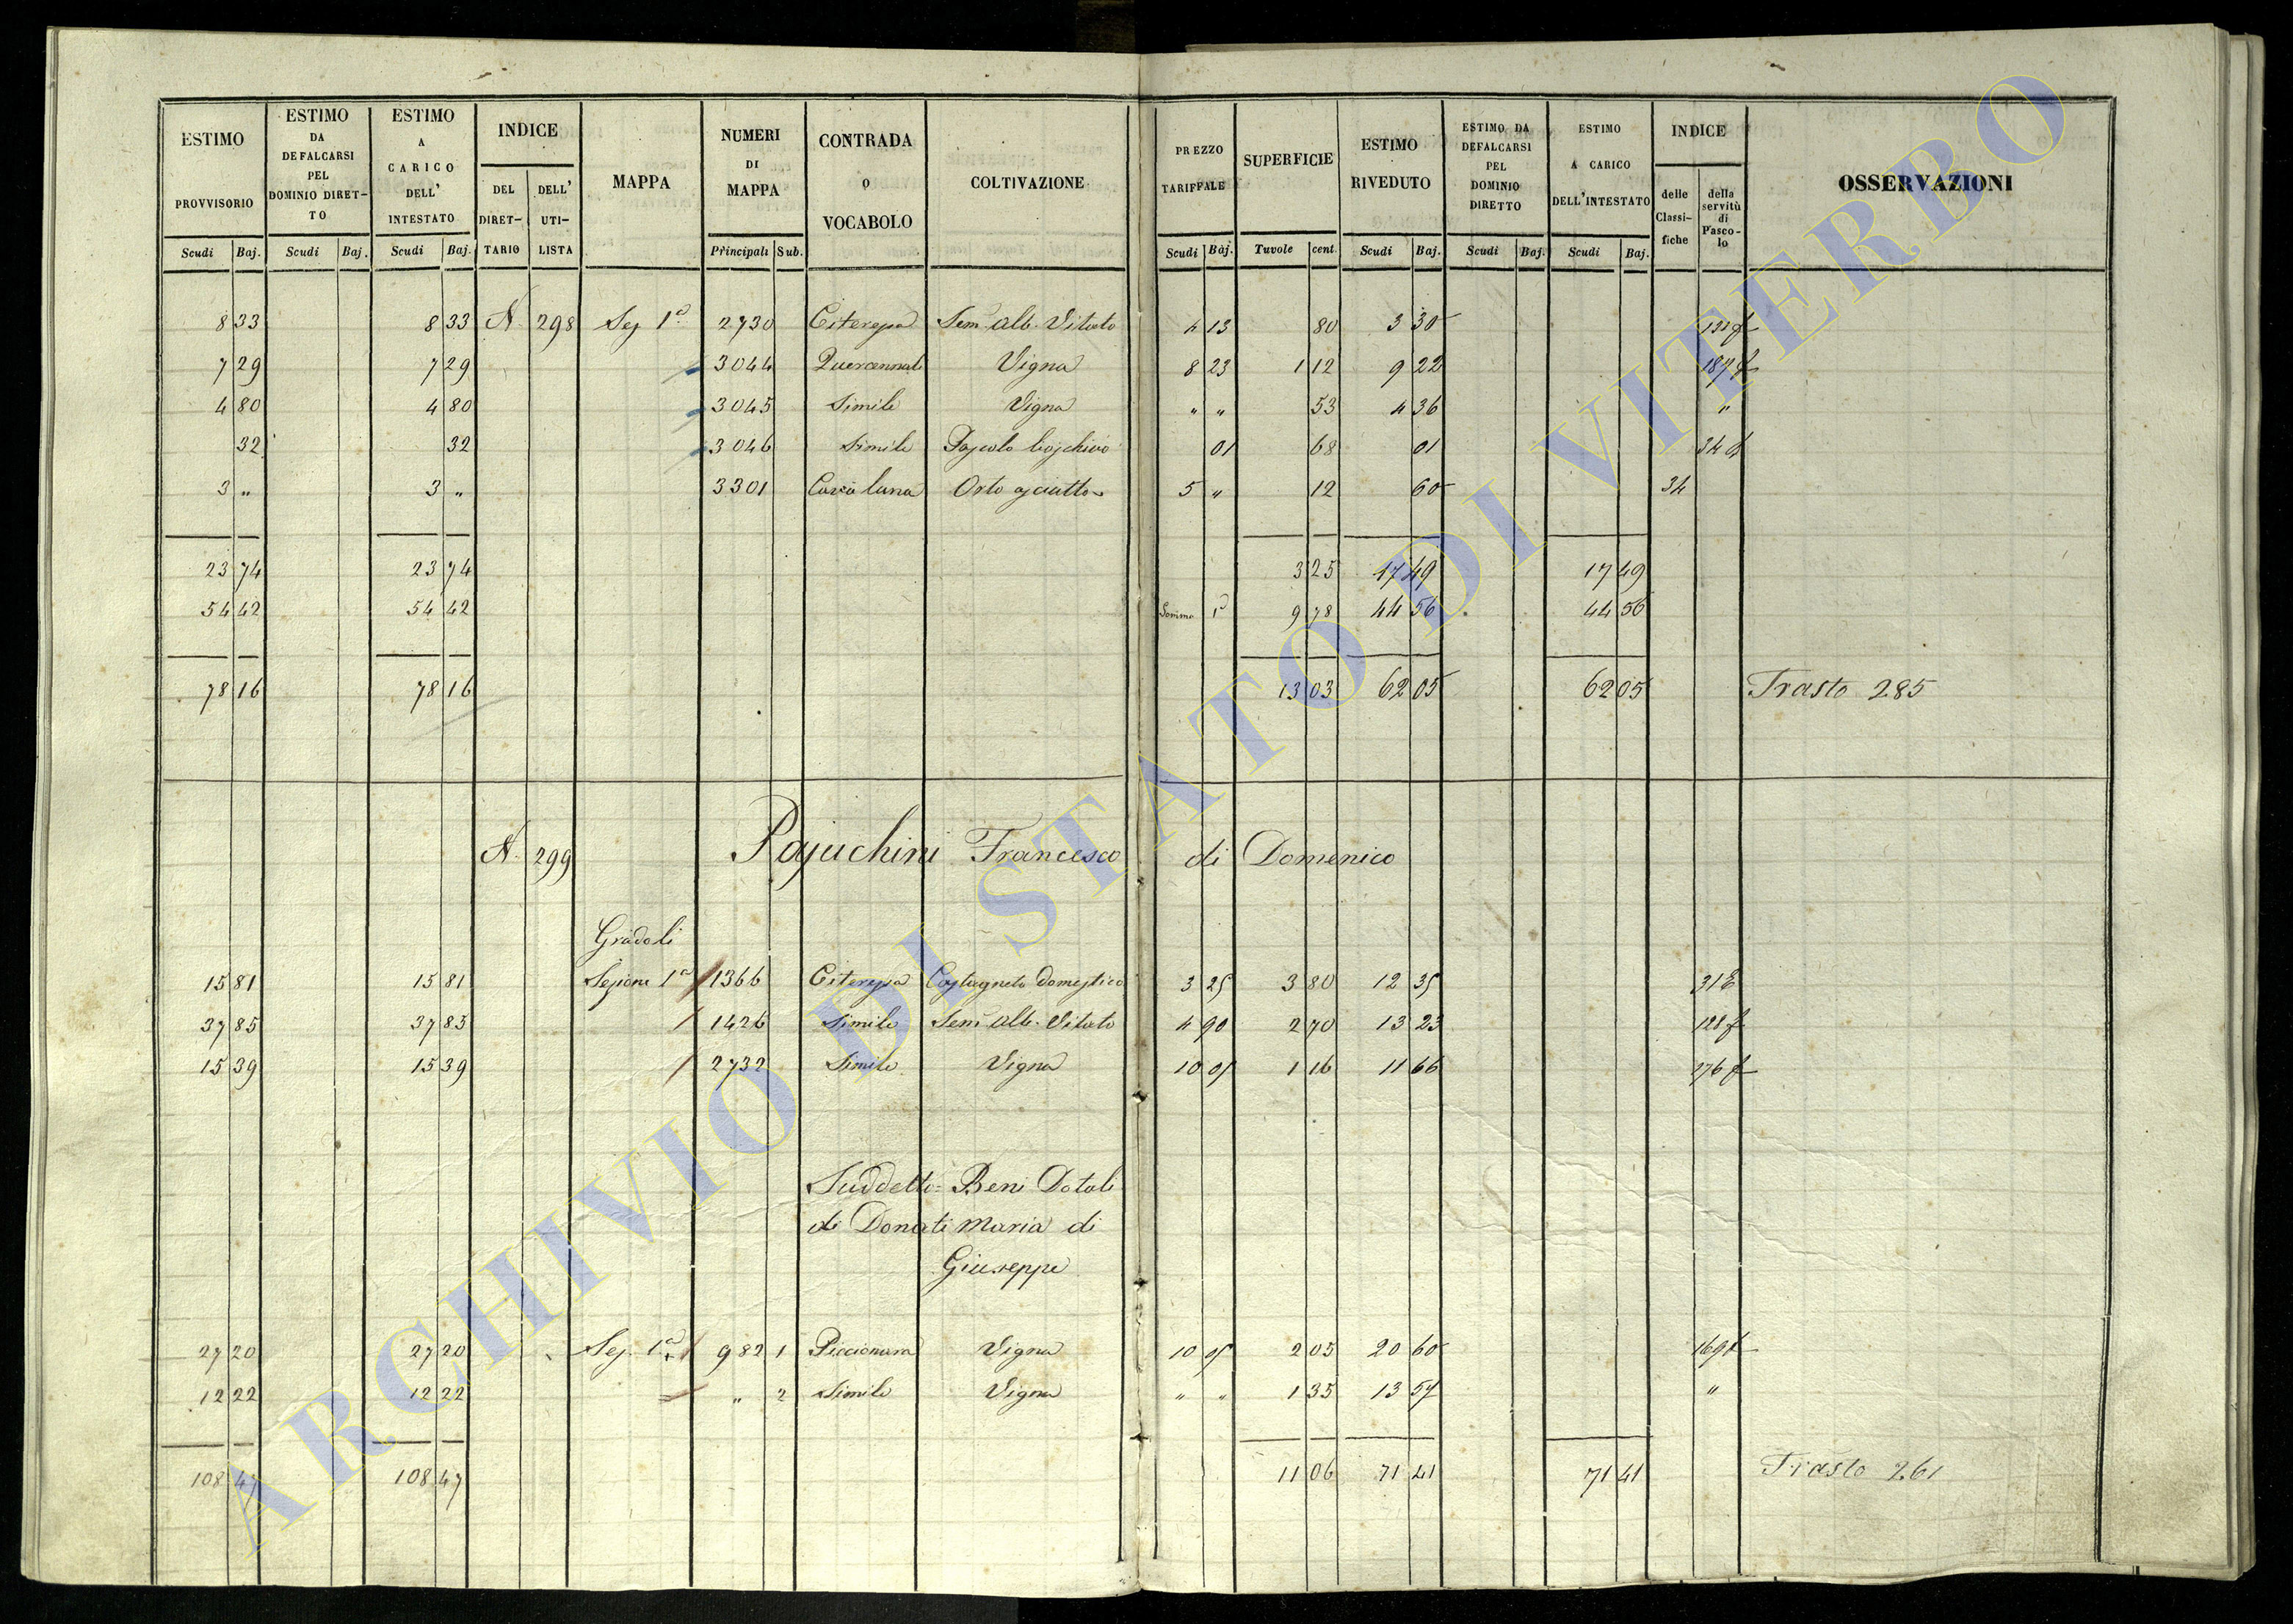 ESTIMO PROVVISORIO Scudi Baj.
ESTIMO DA DEFALCARSI PEL DOMINIO DIRET-TO Scudi Baj.
ESTIMO A CARICO DELL' INTESTATO Scudi Baj.
INDICE DEL DIRET-TARIO DELL' UTI-LISTA
MAPPA
NUMERI DI MAPPA Principali Sub.
CONTRADA O VOCABOLO
COLTIVAZIONE
PREZZO TARIFFALE Scudi Baj.
SUPERFICIE Tavole cent.
ESTIMO RIVEDUTO Scudi Baj.
ESTIMO DA DEFALCARSI PEL DOMINIO DIRETTO Scudi Baj.
ESTIMO A CARICO DELL'INTESTATO Scudi Baj.
INDICE delle Classi-fiche della servitù di Pasco-lo
OSSERVAZIONI
8 33 8 33 N. 298 Sez 1a 2730 Citerepa Sem. Alb. Vitato 4 13 80 3 30
7 29 7 29 3044 Vigna 8 23 1 12 9 22
4 80 4 80 3045 Simile Vigna " " 53 4 36 "
32 32 3046 Simile Pascolo boschivo 01 68 01
3 " 3 " 3301 Cava luna Orto asciutto 5 " 12 60 34
23 74 23 74 3 25 17 49 17 49
54 42 54 42 Somma 9 78 44 56 44 56
78 16 78 16 13 03 62 05 62 05 Trasto 285
N. 299 Pajuchini Francesco di Domenico
Gradoli
15 81 15 81 Sezione 1a 1366 Citerepa Castagneto domestico 3 25 3 80 12 35
37 85 37 85 1426 Simile Sem. Alb. Vitato 4 90 2 70 13 23
15 39 15 39 2732 Simile Vigna 10 05 1 16 11 66
Suddetto = Beni Dotali
di Donati Maria di
Giuseppe
27 20 27 20 Sez. 1a 982 1 Piccionara Vigna 10 05 2 05 20 60
12 22 12 22 " 2 Simile Vigna " " 1 35 13 57 "
108 47 108 47 11 06 71 41 71 41 Trasto 261
ARCHIVIO DI STATO DI VITERBO